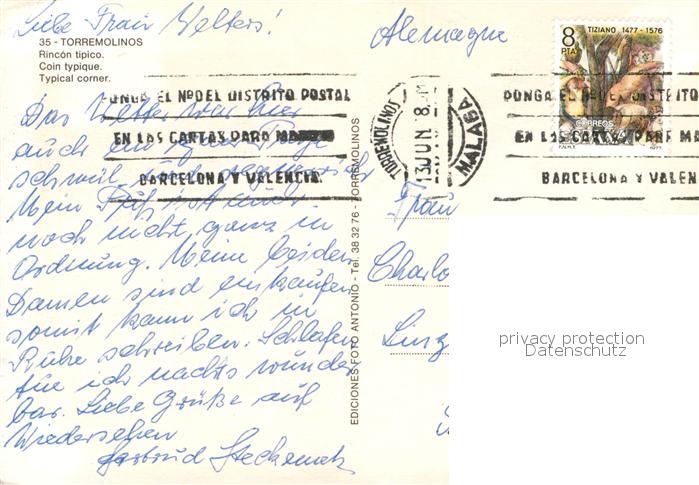 Liebe Frau Welters!
35 - TORREMOLINOS
Rincón típico.
Coin typique.
Typical corner.
Das Wetter war hier
auch ein paar Tage
schwül und regnerisch
Mein Fuß ist auch
noch nicht, ganz in
Ordnung. Meine beiden
Damen sind einkaufen
somit kann ich in
Ruhe schreiben. Schlafen
tue ich nachts wunder
bar. Liebe Grüße auf
Wiedersehen
Gertrud
EDICIONES FOTO ANTONIO - Tel. 38 32 76 - TORREMOLINOS
Alemagne
8 PTA
TIZIANO 1477 - 1576
CORREOS
PONGA EL Nº DEL DISTRITO POSTAL
EN LAS CARTAS PARA MADRID
BARCELONA Y VALENCIA
TORREMOLINOS
13 JUN 8
MALAGA
PONGA EL Nº DEL DISTRITO
EN LAS CARTAS PARA MA
BARCELONA Y VALEN
Frau
Charlo
Linz
privacy protection
Datenschutz